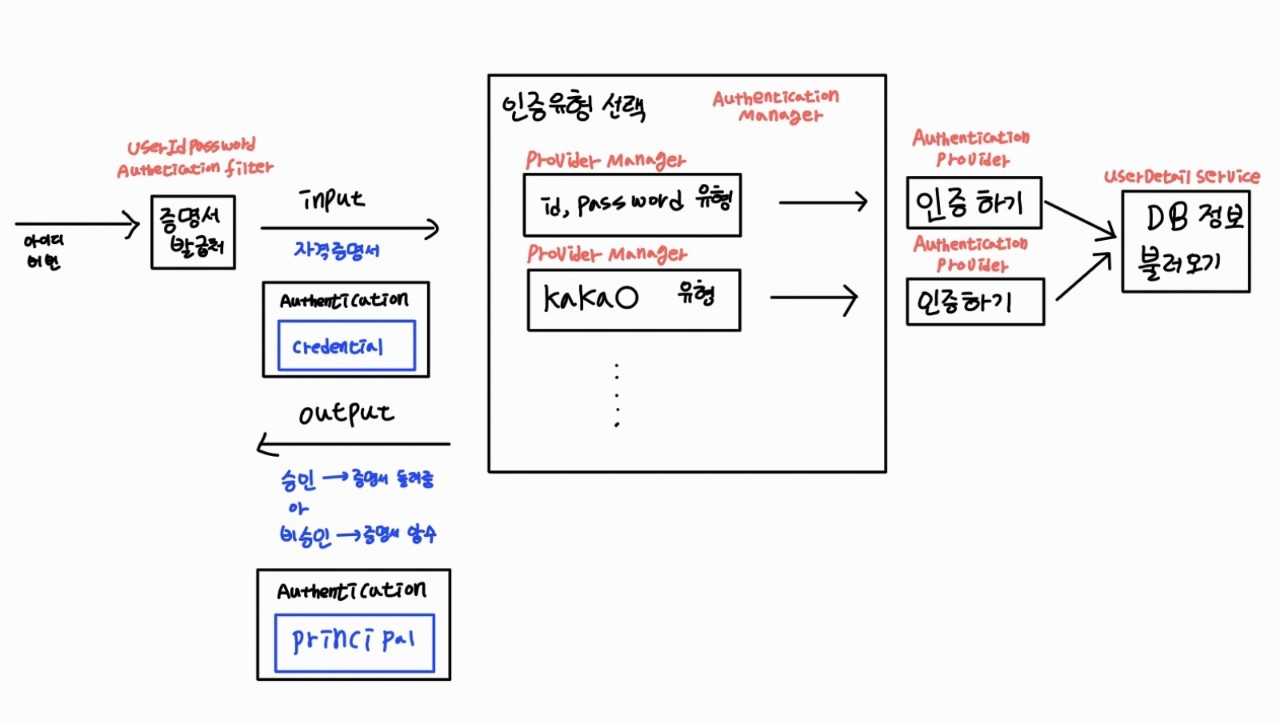 아이디
비번
UserIdPassword
Authetication filter
증명서
발급처
input
자격증명서
Authentication
credential
output
승인 → 증명서 돌려줌
아
비승인 → 증명서 압수
Authentication
principal
인증유형 선택
Authentication
Manager
Provider Manager
id, password 유형
Provider Manager
kakao 유형
Authentication
Provider
인증하기
Authentication
Provider
인증하기
UserDetail Service
DB 정보
불러오기